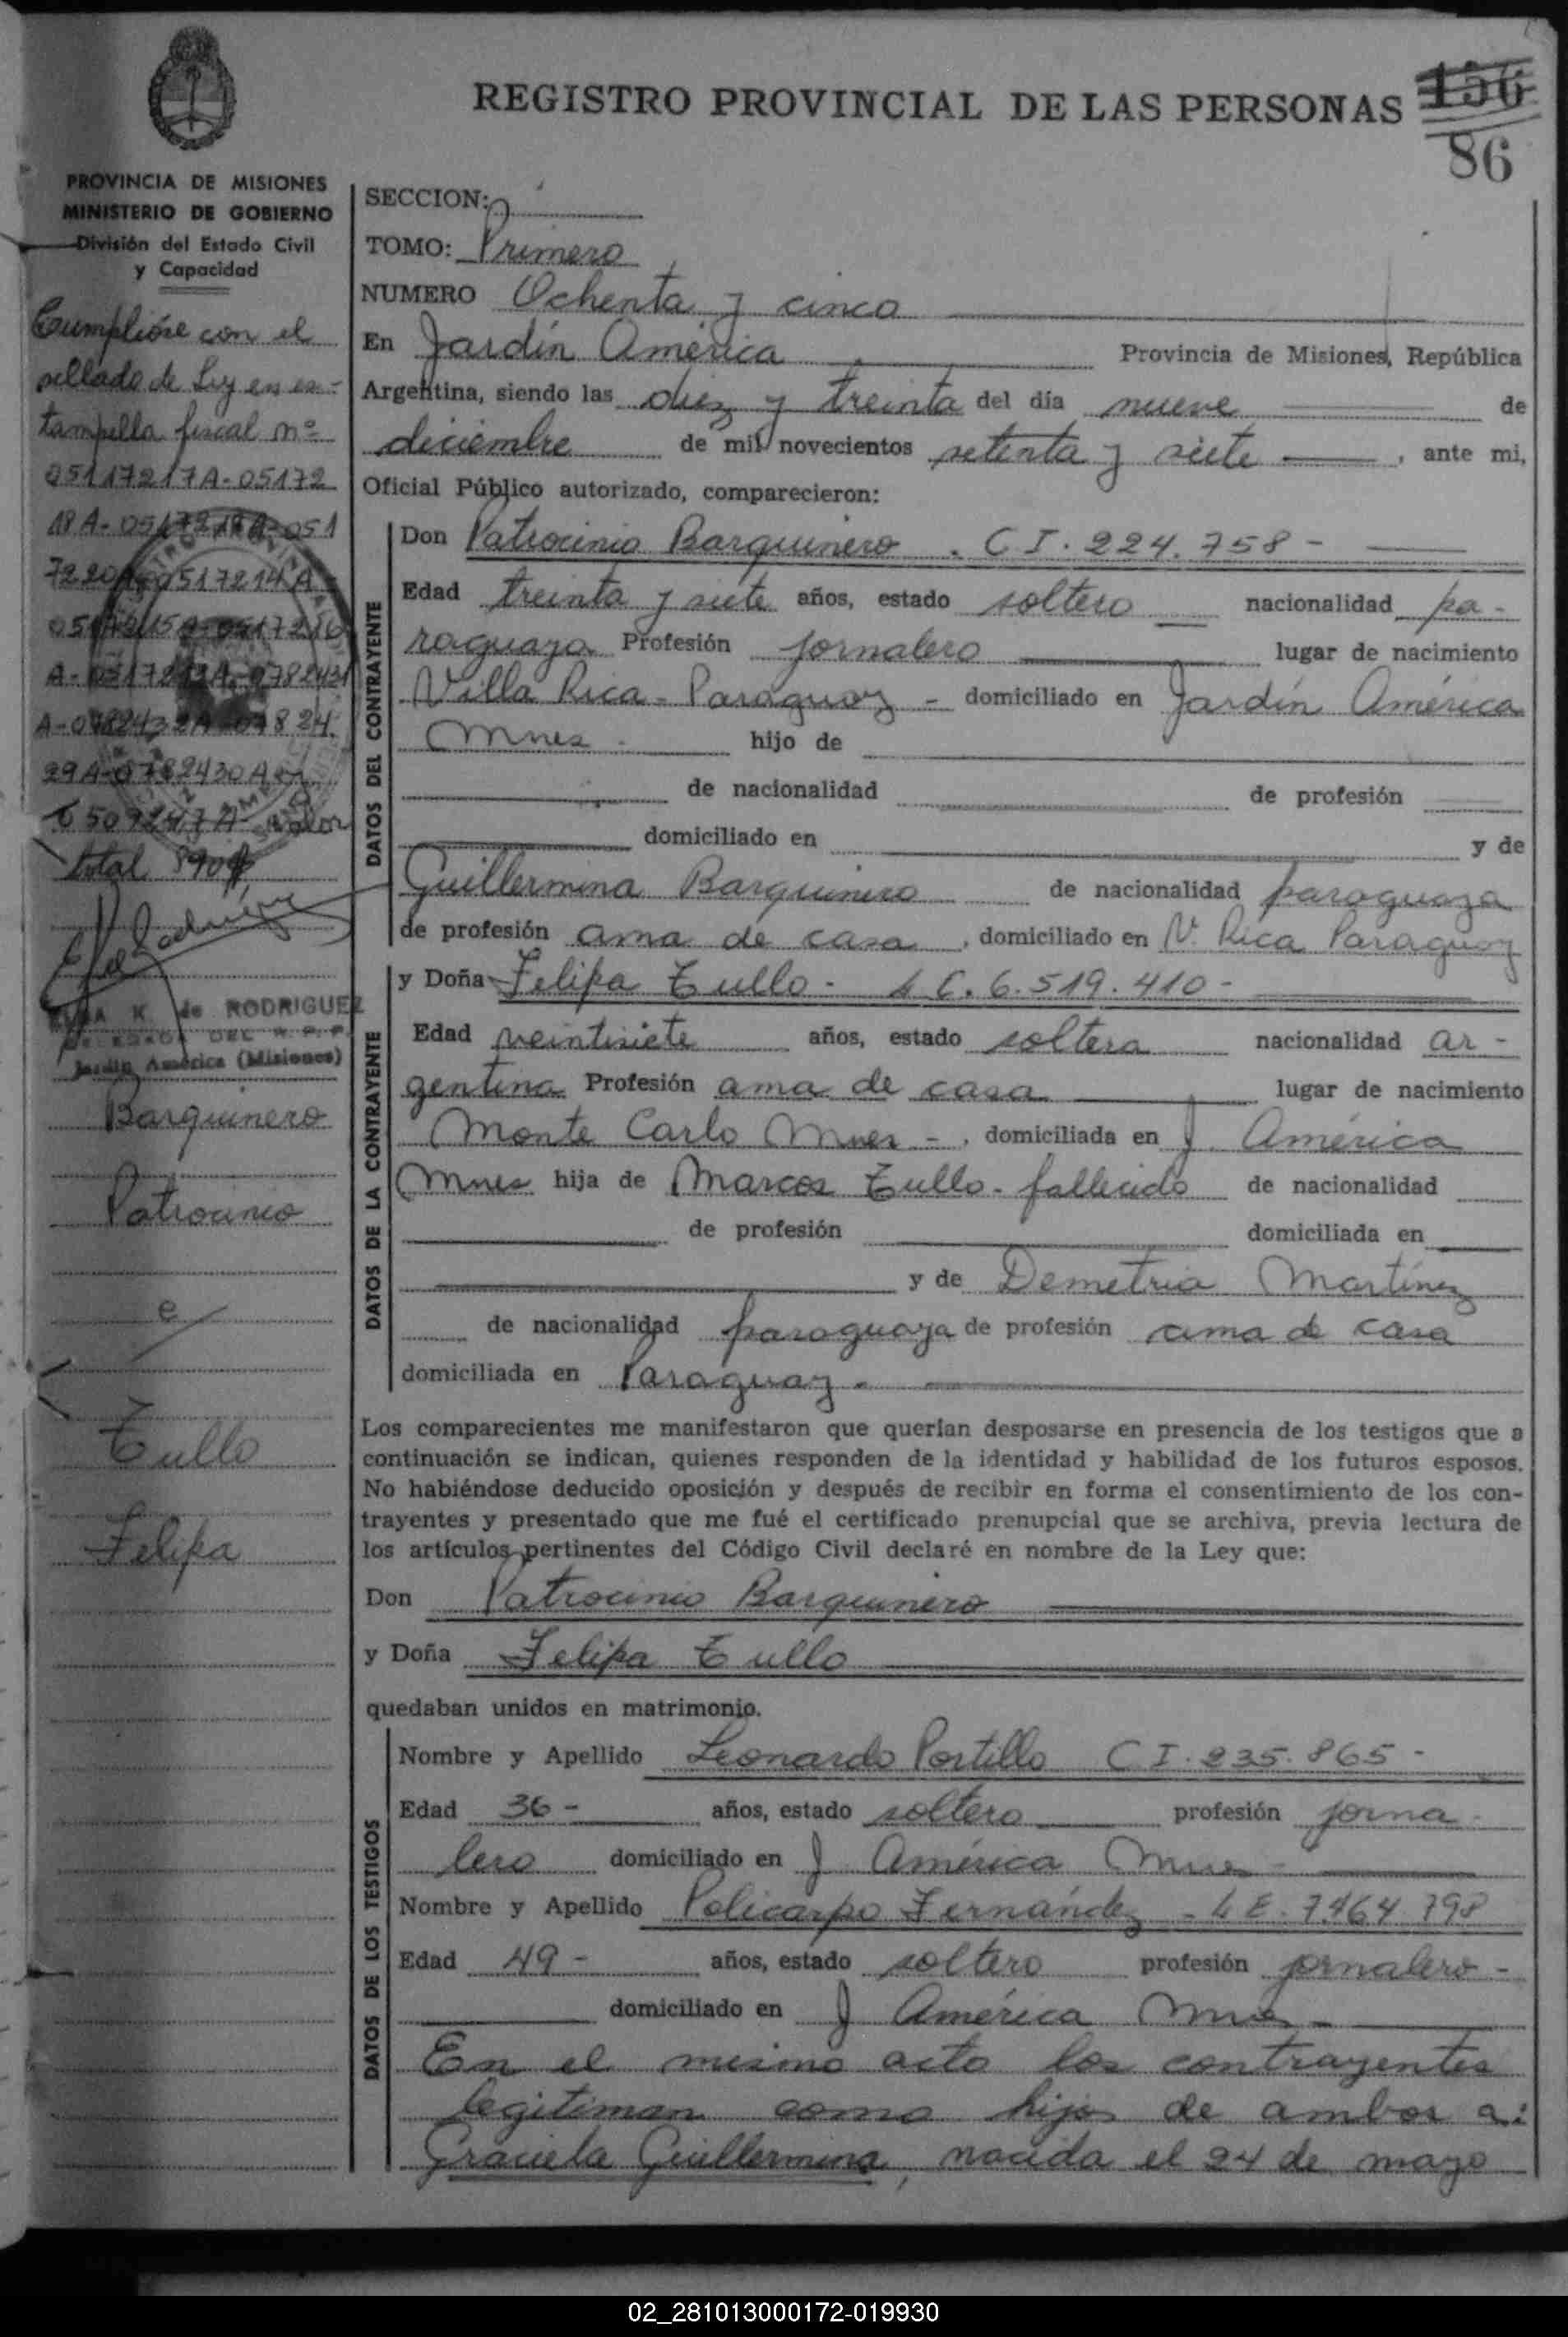 REGISTRO PROVINCIAL DE LAS PERSONAS 156
86
PROVINCIA DE MISIONES
MINISTERIO DE GOBIERNO
División del Estado Civil
y Capacidad
Cumplióse con el
sellado de Ley en es-
tampilla fiscal nº
05117217A-05172
18A-0517219A-051
7220A-0517214A
0517215A-0517216
A-0517213A-0782431
A-0782432A-07824
29A-0782430A
6509247A- valor
total 890$
ELSA K. de RODRIGUEZ
DELEGADO DEL R. P. P.
Jardín América (Misiones)
Barquinero
Patrocinio
e/
Tullo
Felipa
SECCION:
TOMO: Primero
NUMERO Ochenta y cinco
En Jardín América Provincia de Misiones, República
Argentina, siendo las diez y treinta del día nueve de
diciembre de mil novecientos setenta y siete, ante mi,
Oficial Público autorizado, comparecieron:
DATOS DEL CONTRAYENTE
Don Patrocinio Barquinero. C I. 224.758-
Edad treinta y siete años, estado soltero nacionalidad pa-
raguaya Profesión jornalero lugar de nacimiento
Villa Rica-Paraguay - domiciliado en Jardín América
Mnes. hijo de
de nacionalidad de profesión
domiciliado en y de
Guillermina Barquinero de nacionalidad paraguaya
de profesión ama de casa, domiciliado en V. Rica Paraguay
DATOS DE LA CONTRAYENTE
y Doña Felipa Tullo. L C. 6.519.410-
Edad veintisiete años, estado soltera nacionalidad ar-
gentina Profesión ama de casa lugar de nacimiento
Monte Carlo Mnes-, domiciliada en J América
Mnes hija de Marcos Tullo-fallecido de nacionalidad
de profesión domiciliada en
y de Demetria Martínez
de nacionalidad paraguaya de profesión ama de casa
domiciliada en Paraguay.
Los comparecientes me manifestaron que querían desposarse en presencia de los testigos que a
continuación se indican, quienes responden de la identidad y habilidad de los futuros esposos.
No habiéndose deducido oposición y después de recibir en forma el consentimiento de los con-
trayentes y presentado que me fué el certificado prenupcial que se archiva, previa lectura de
los artículos pertinentes del Código Civil declaré en nombre de la Ley que:
Don Patrocinio Barquinero
y Doña Felipa Tullo
quedaban unidos en matrimonio.
DATOS DE LOS TESTIGOS
Nombre y Apellido Leonardo Portillo C I. 235.865-
Edad 36- años, estado soltero profesión jorna-
lero domiciliado en J América Mnes-
Nombre y Apellido Policarpo Fernández - L E. 7.464.798
Edad 49- años, estado soltero profesión jornalero-
domiciliado en J América Mnes-
En el mismo acto los contrayentes
legitiman como hijos de ambos a:
Graciela Guillermina, nacida el 24 de mayo
02_281013000172-019930